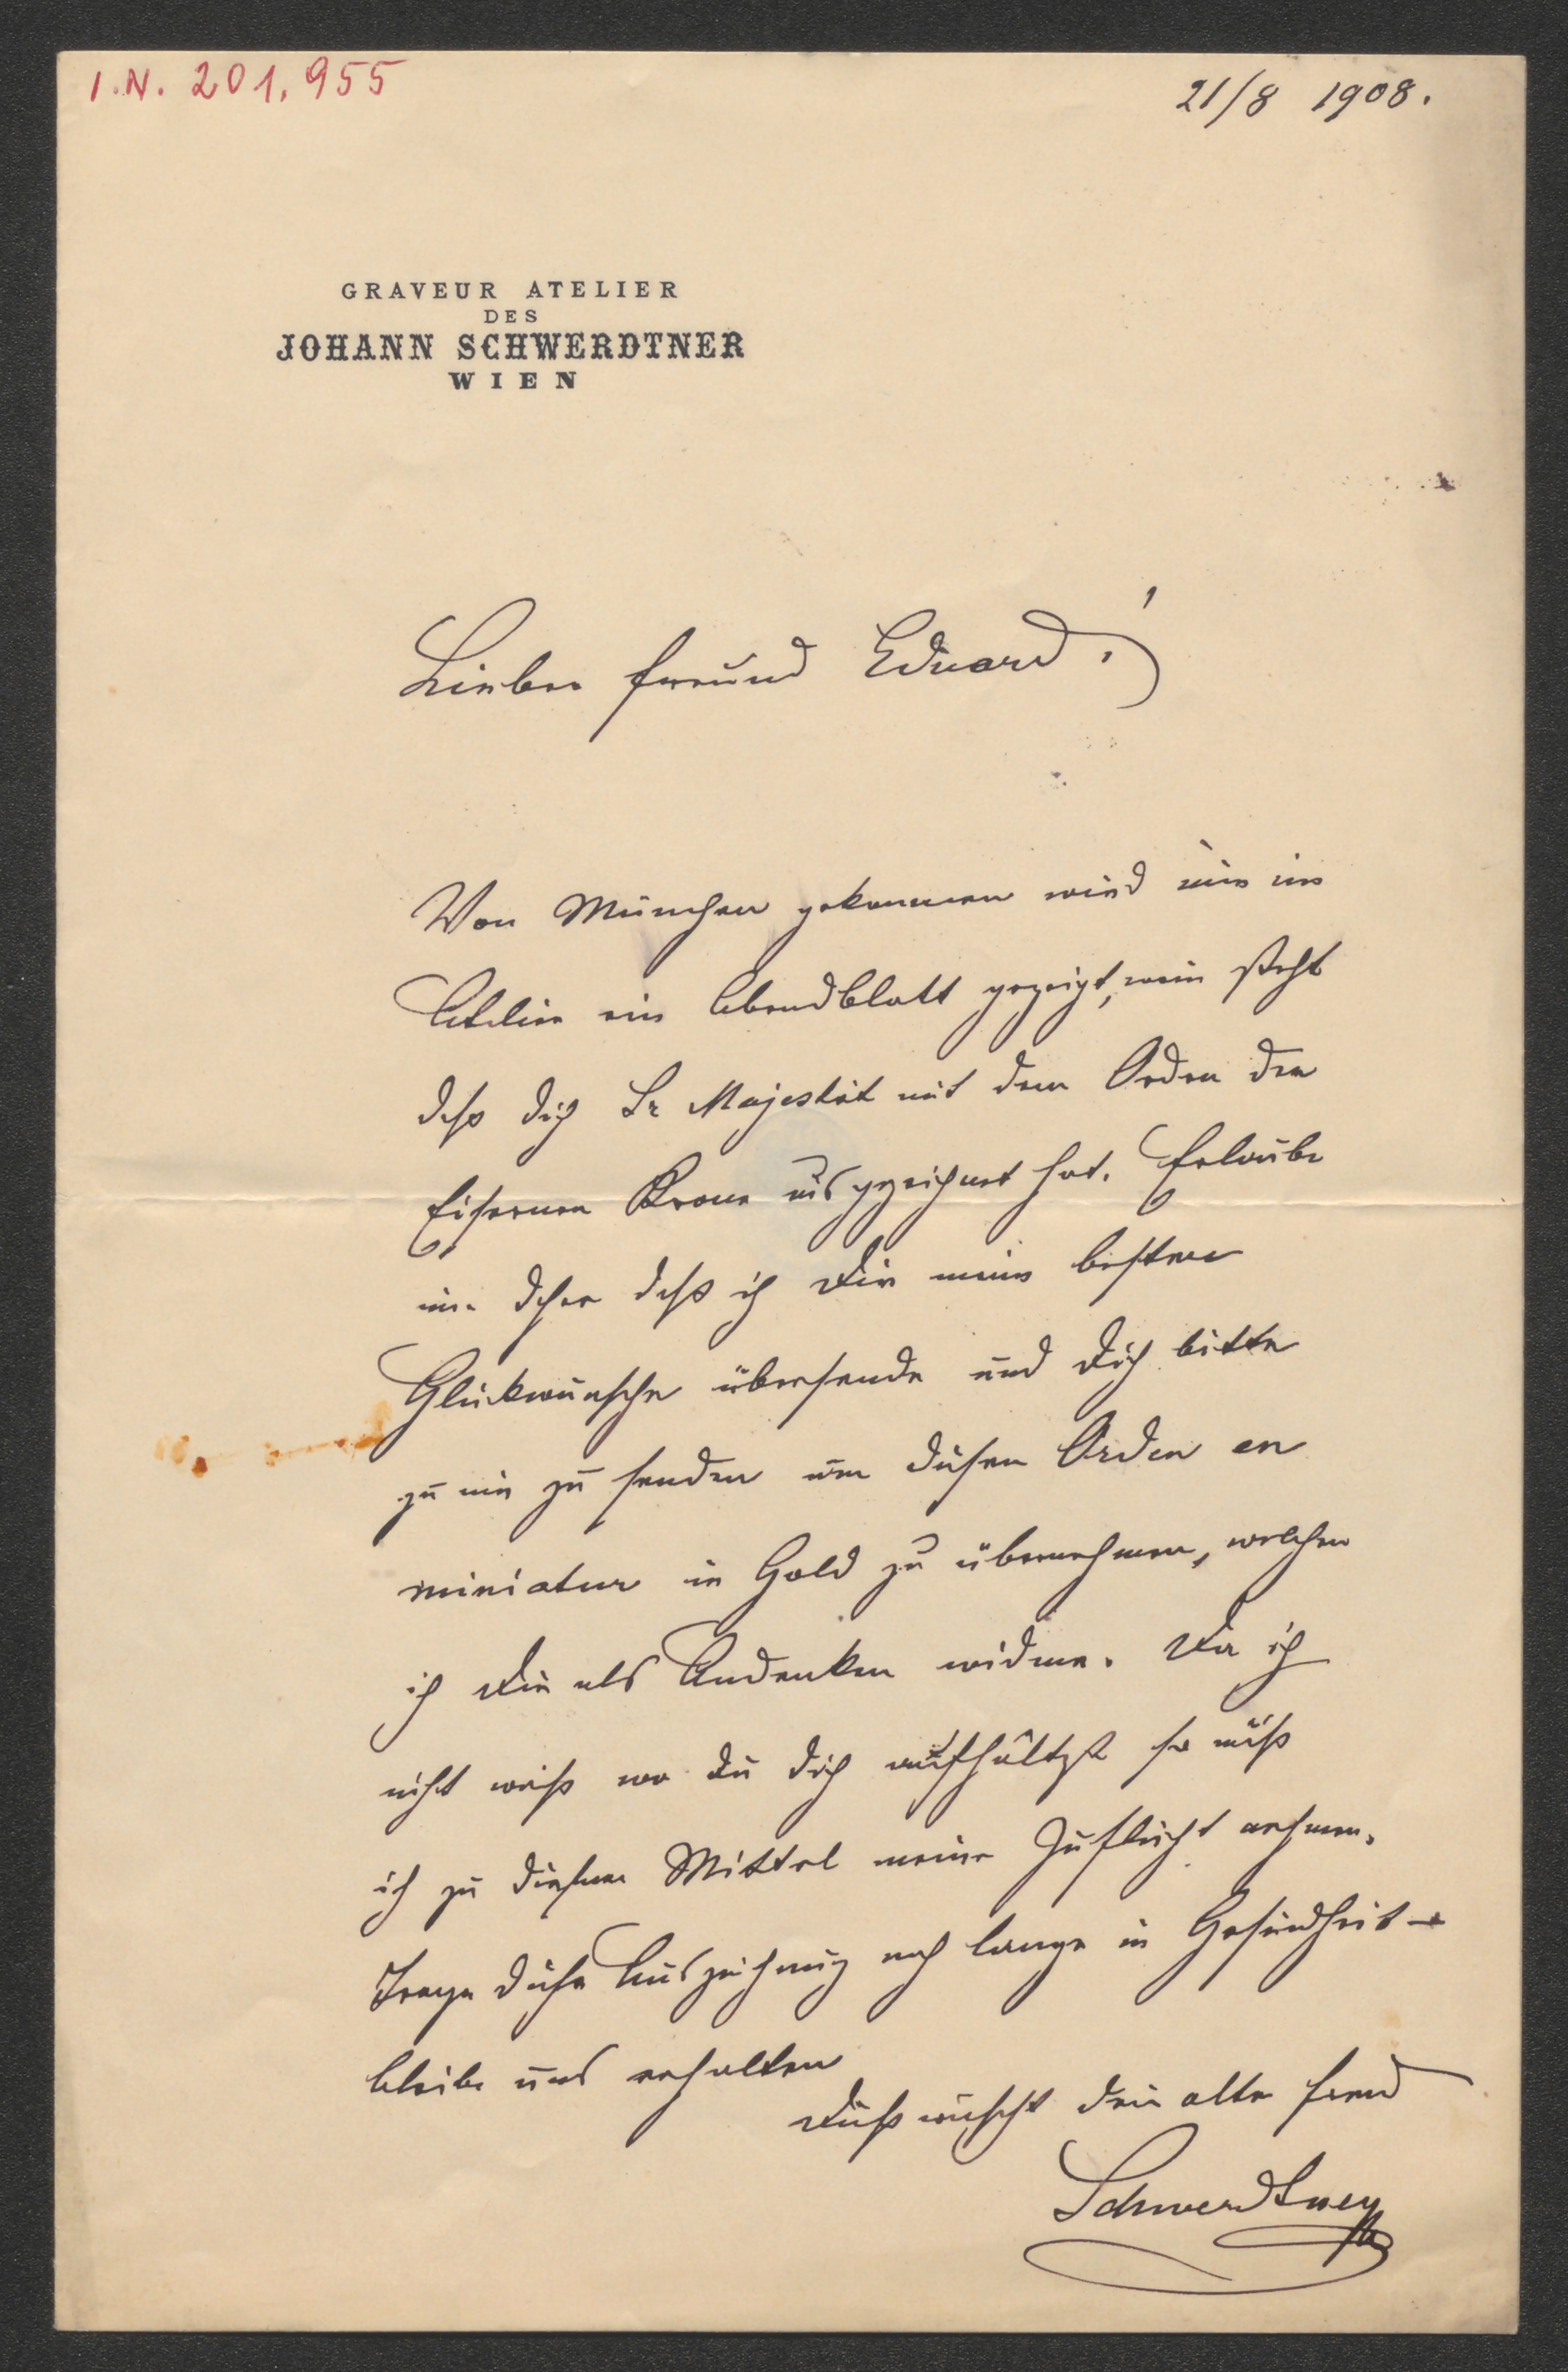 I.N. 201.955
21/8 1908.
GRAVEUR ATELIER
DES
JOHANN SCHWERDTNER
WIEN
Lieber Freund Eduard!
Von München gekommen wird mir im
Atelier ein Abendblatt gezeigt, steht
daß dich Sr Majestät mit dem Orden der
Eisernen Krone ausgezeichnet hat. Erlaube
mir daher daß ich Dir meine besten
Glückwünsche übersende und Dich bitte
zu mir zu senden um diesen Orden en
miniatur in Gold zu übernehmen, welchen
ich Dir als Andenken widme. Da ich
nicht weiß wo Du dich aufhältst so muß
ich zu diesem Mittel meine Zuflucht nehmen.
Trage diese Auszeichnung noch lange in Gesundheit
bleibe uns erhalten
Dieß wünscht dein alter Freund
Schwerdtner